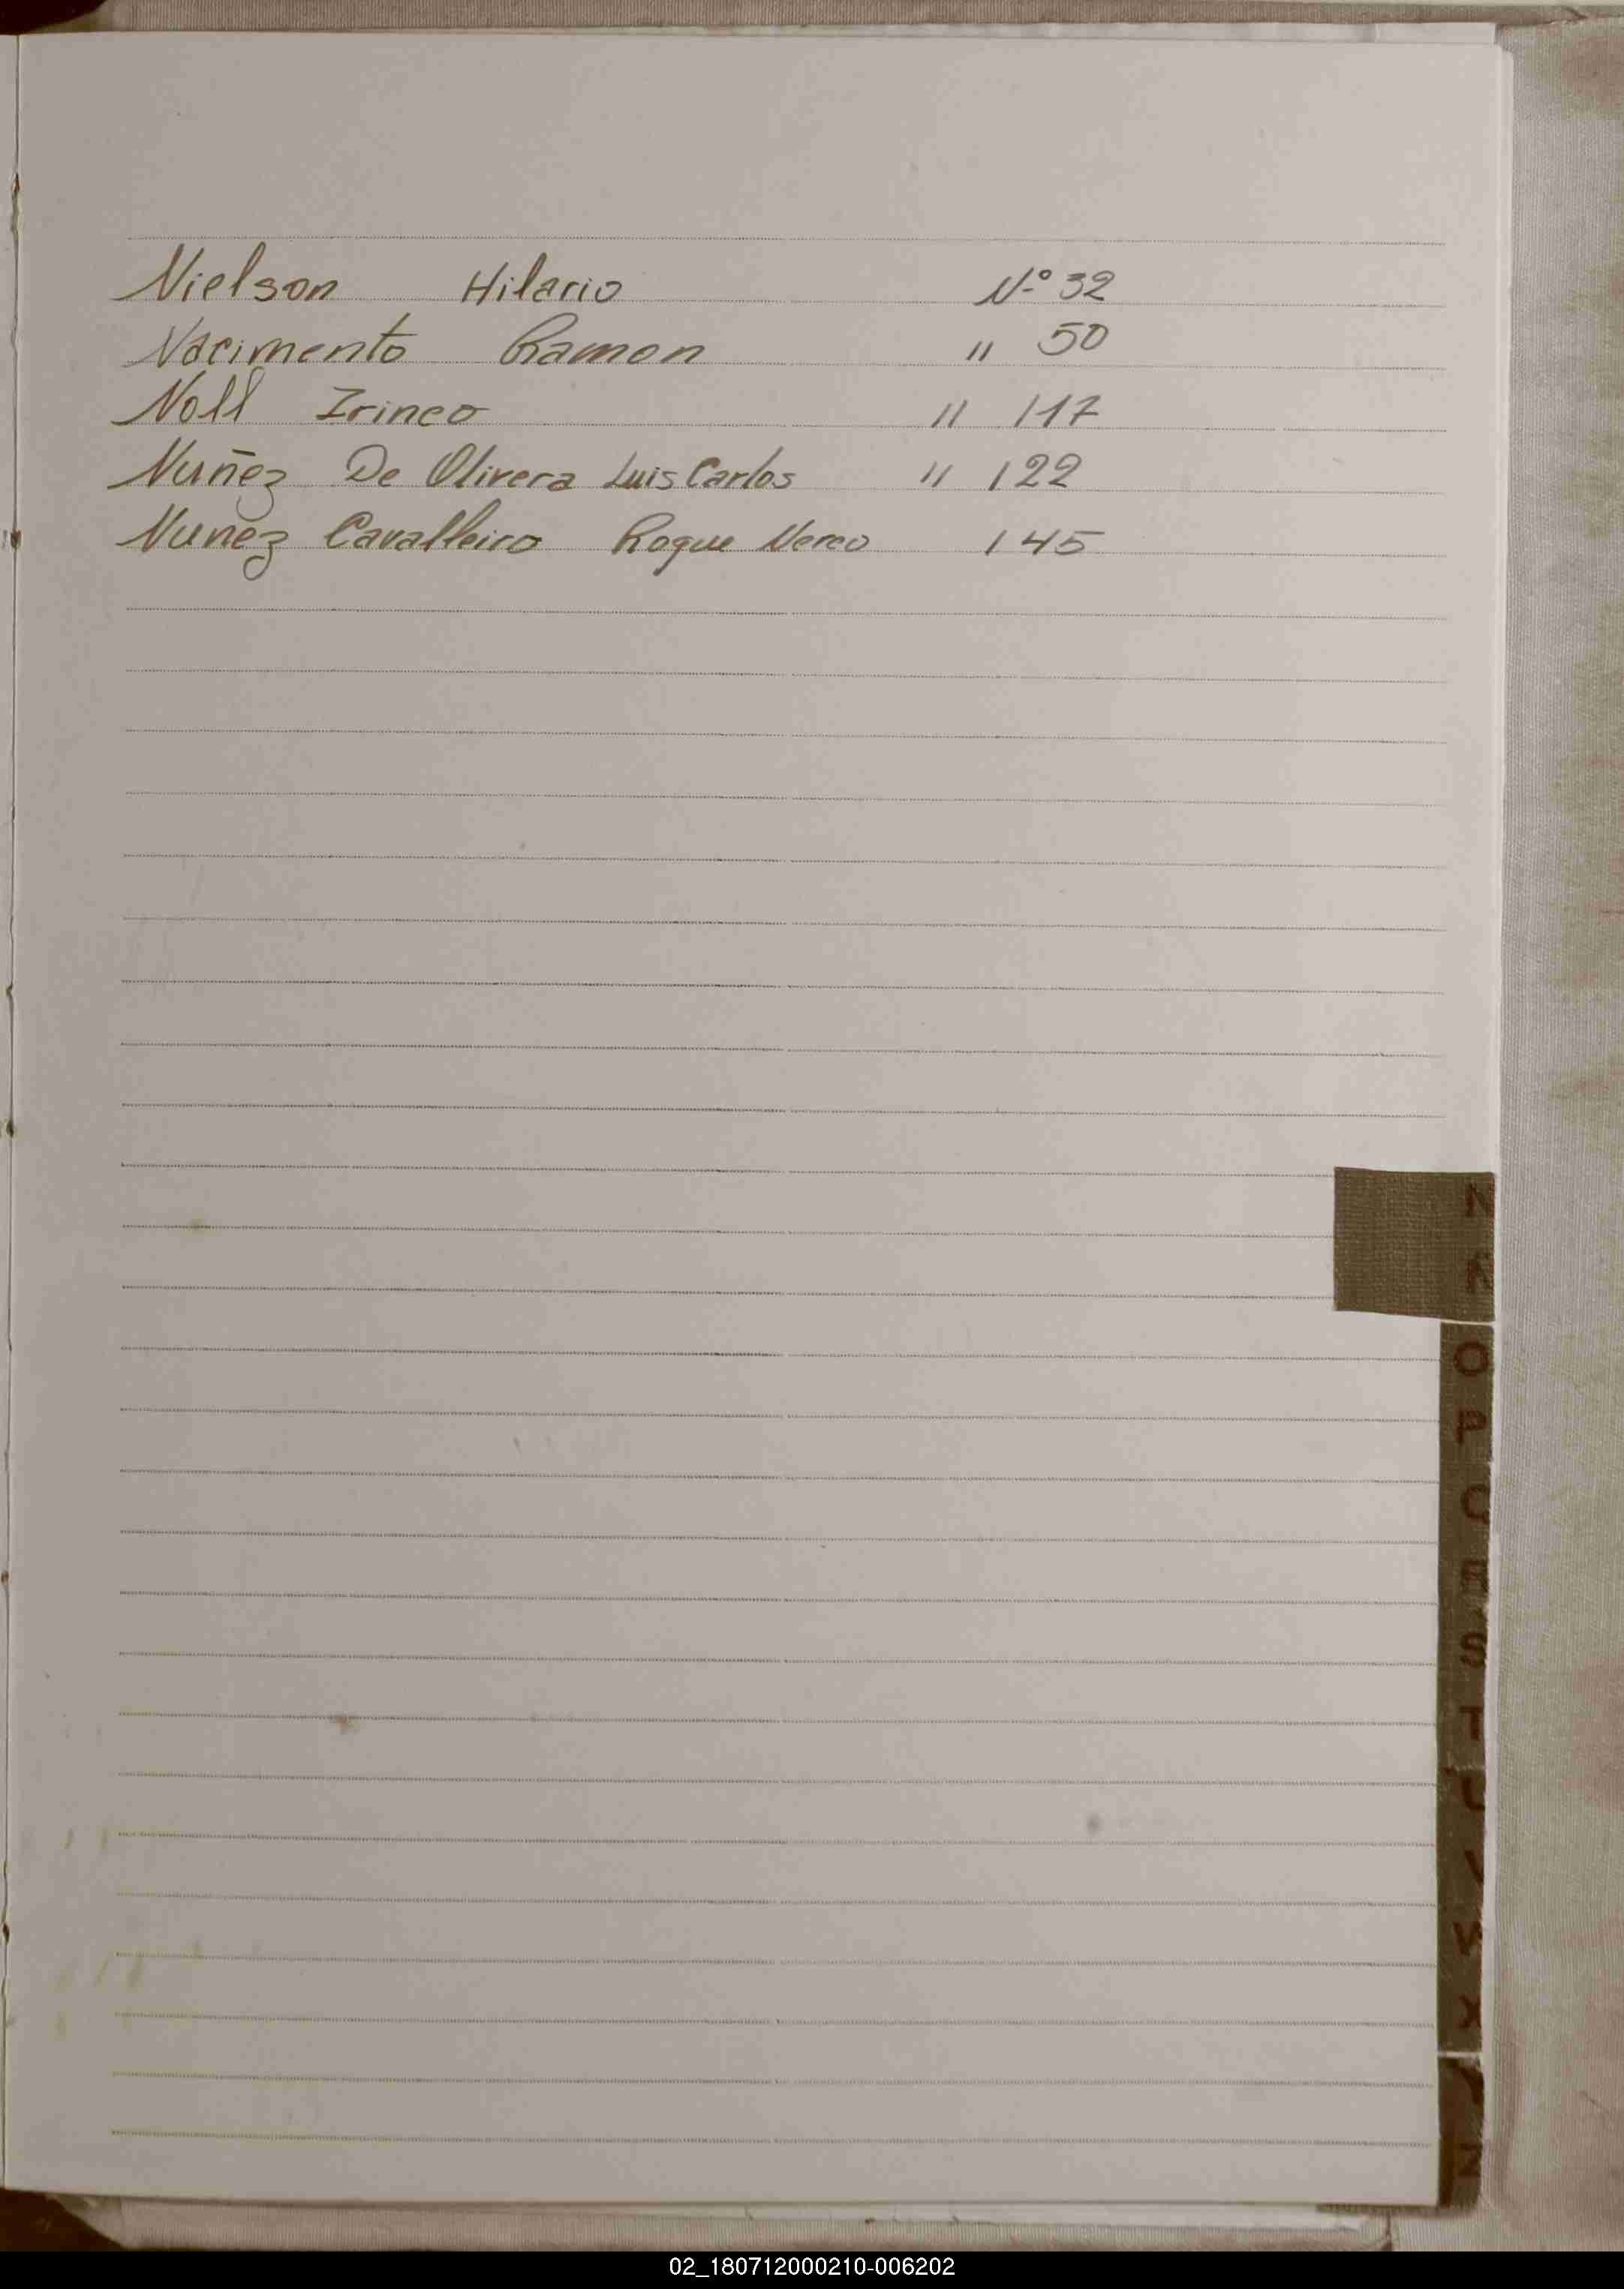 Nielson Hilario Nº 32
Nacimento Ramon " 50
Noll Irineo " 117
Nuñez De Olivera Luis Carlos " 122
Nuñez Cavalleiro Roque Nereo 145
N
Ñ
O
P
Q
R
S
T
U
V
W
X
Y
Z
02_180712000210-006202